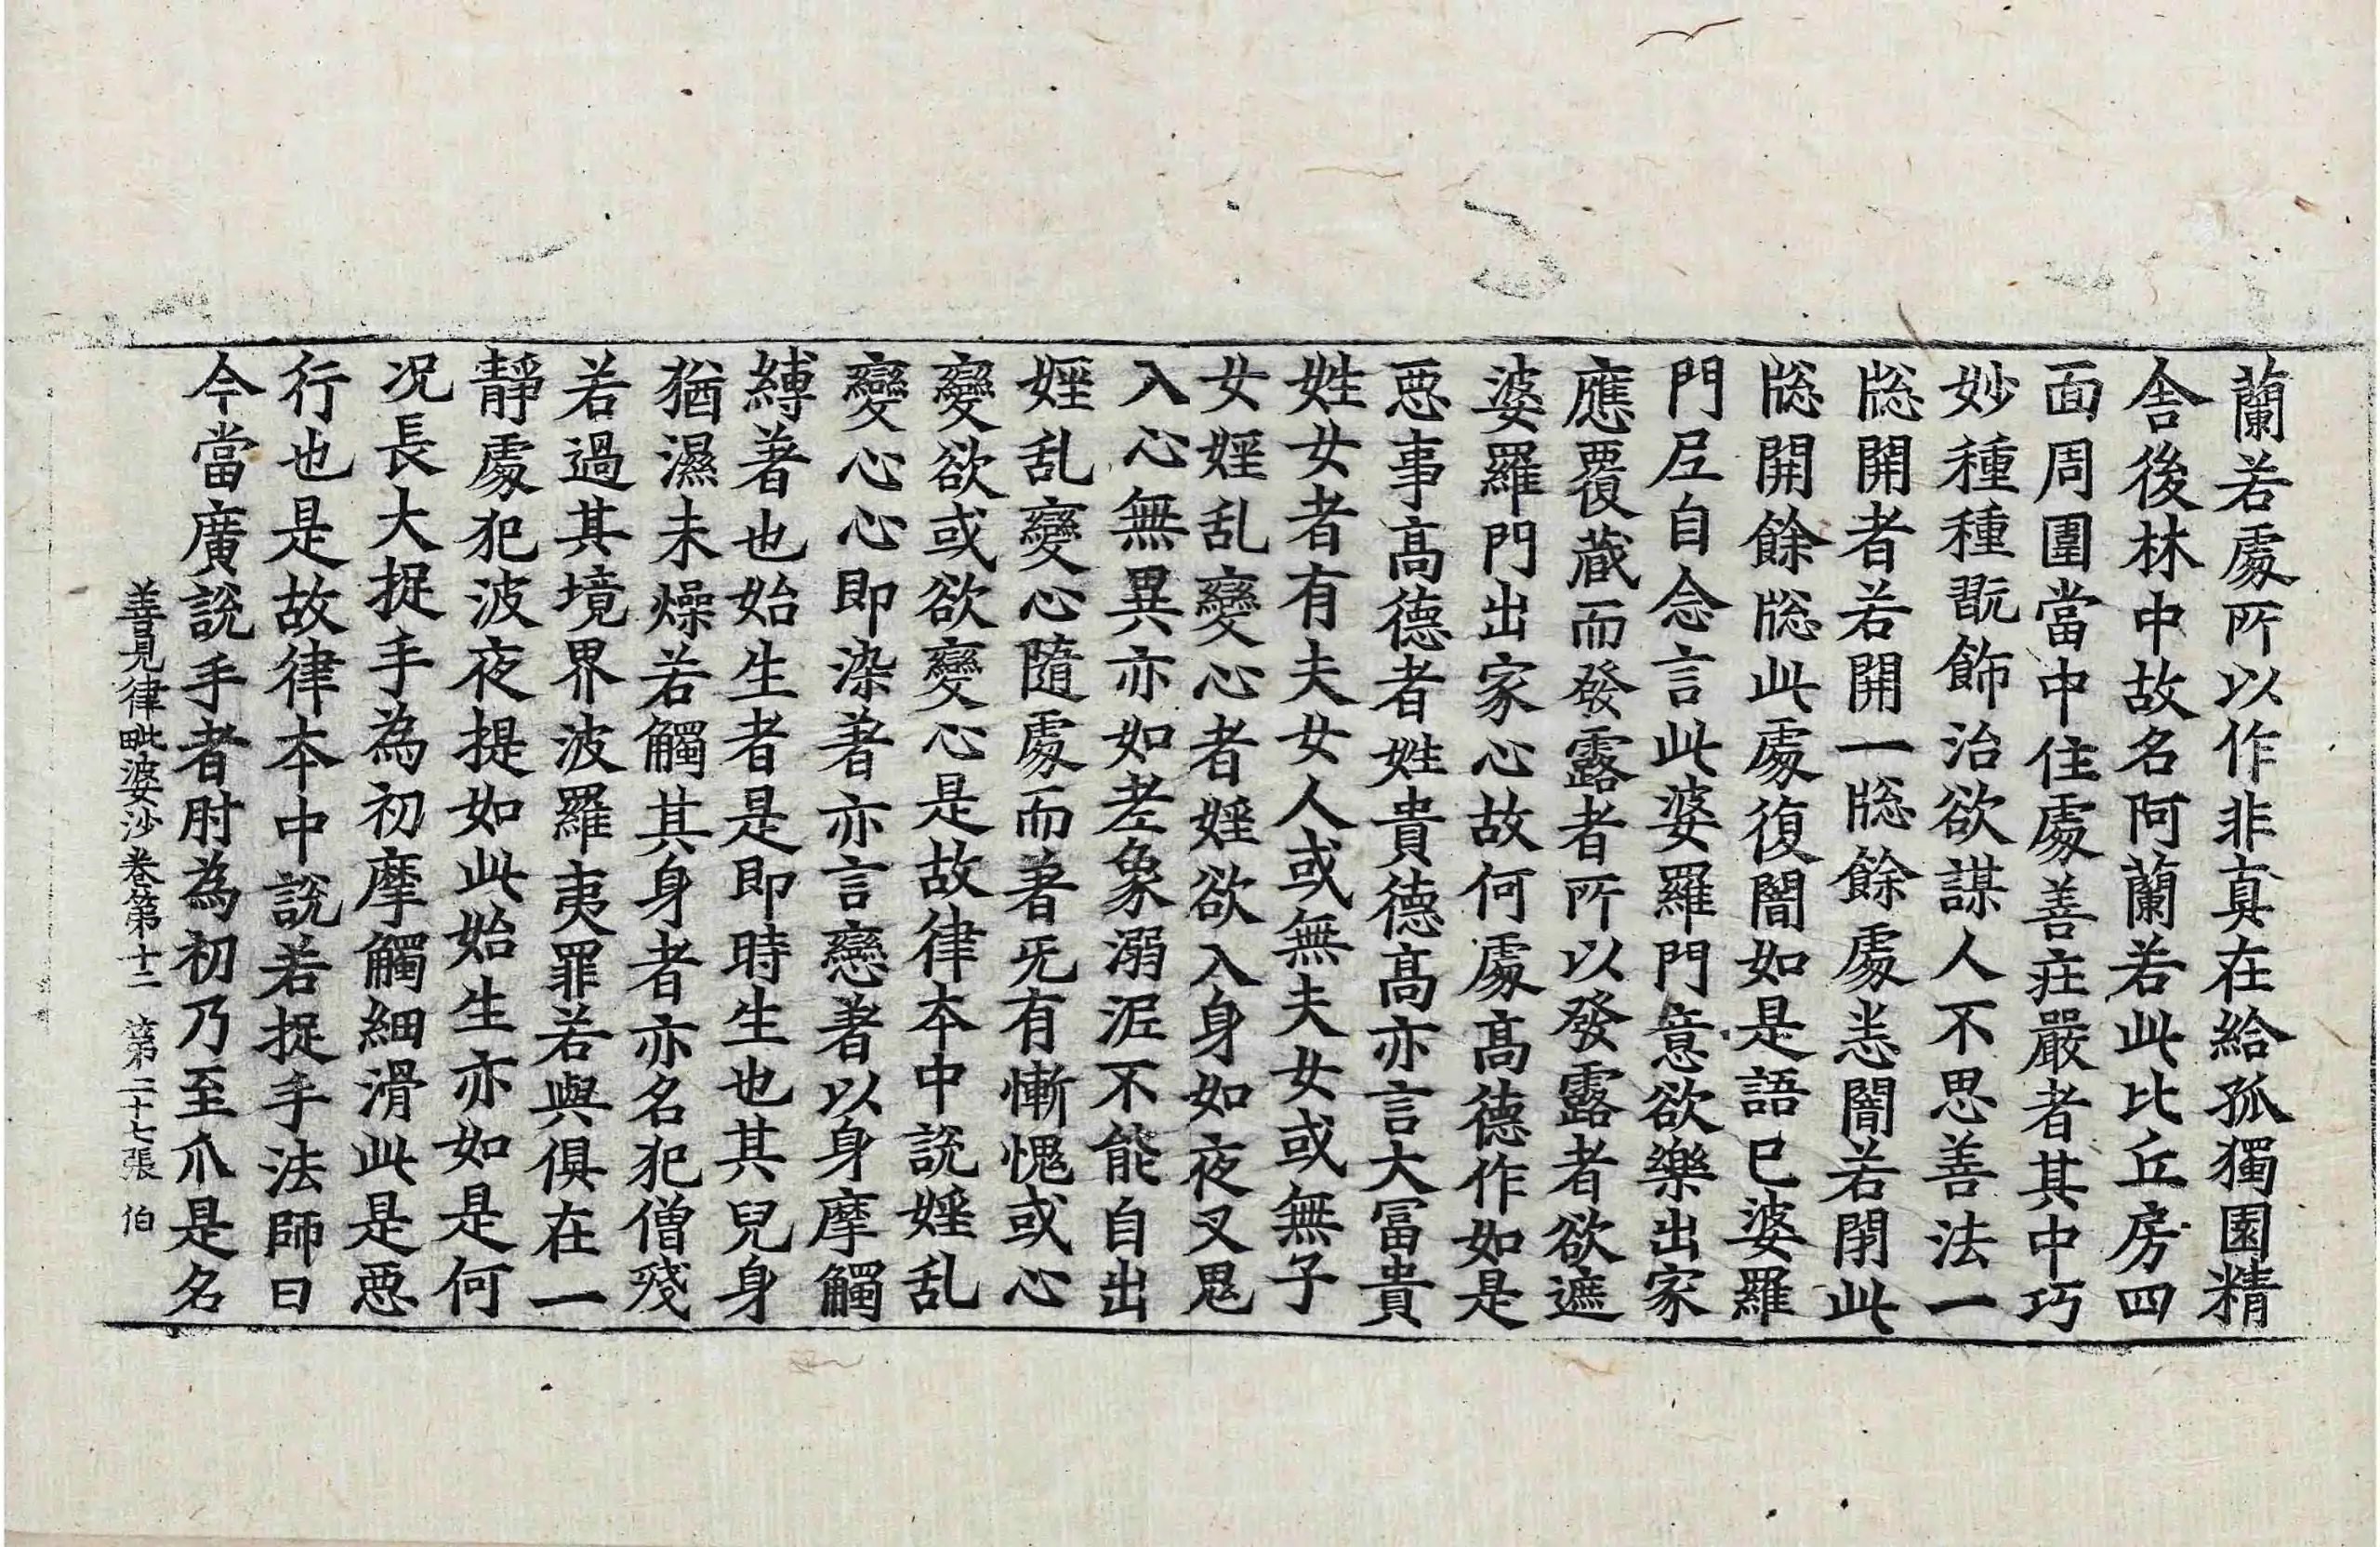 蘭若處所以作非真在給孤獨園精
舍後林中故名阿蘭若此比丘房四
面周圍當中住處善莊嚴者其中巧
妙種種翫飾治欲謀人不思善法一
牎開者若開一牎餘處恙闇若閉此
牎開餘牎此處復闇如是語已婆羅
門𡰱自念言此婆羅門意欲樂出家
應覆蔵而發露者所以發露者欲遮
婆羅門出家心故何處髙德作如是
惡事髙德者姓貴德髙亦言大冨貴
姓女女者有夫女人或無夫女或無子
女婬乱變心者婬欲入身如夜叉鬼
入心無異亦如老象溺泥不能自出
婬乱變心隨處而著旡有慚愧或心
變欲或欲變心是故律本中説婬乱
變心心即染著亦言戀著以身摩觸
縛著也始生者是即時生也其兒身
猶濕未燥若觸其身者亦名犯僧殘
若過其境界波羅夷罪若與俱在一
靜處犯波夜提如此始生亦如是何
况長大捉手為初摩觸細滑此是惡
行也是故律本中説若捉手法師曰
今當廣說手者肘為初乃至爪是名
善見律毗婆沙卷第十二 第二十七張 伯